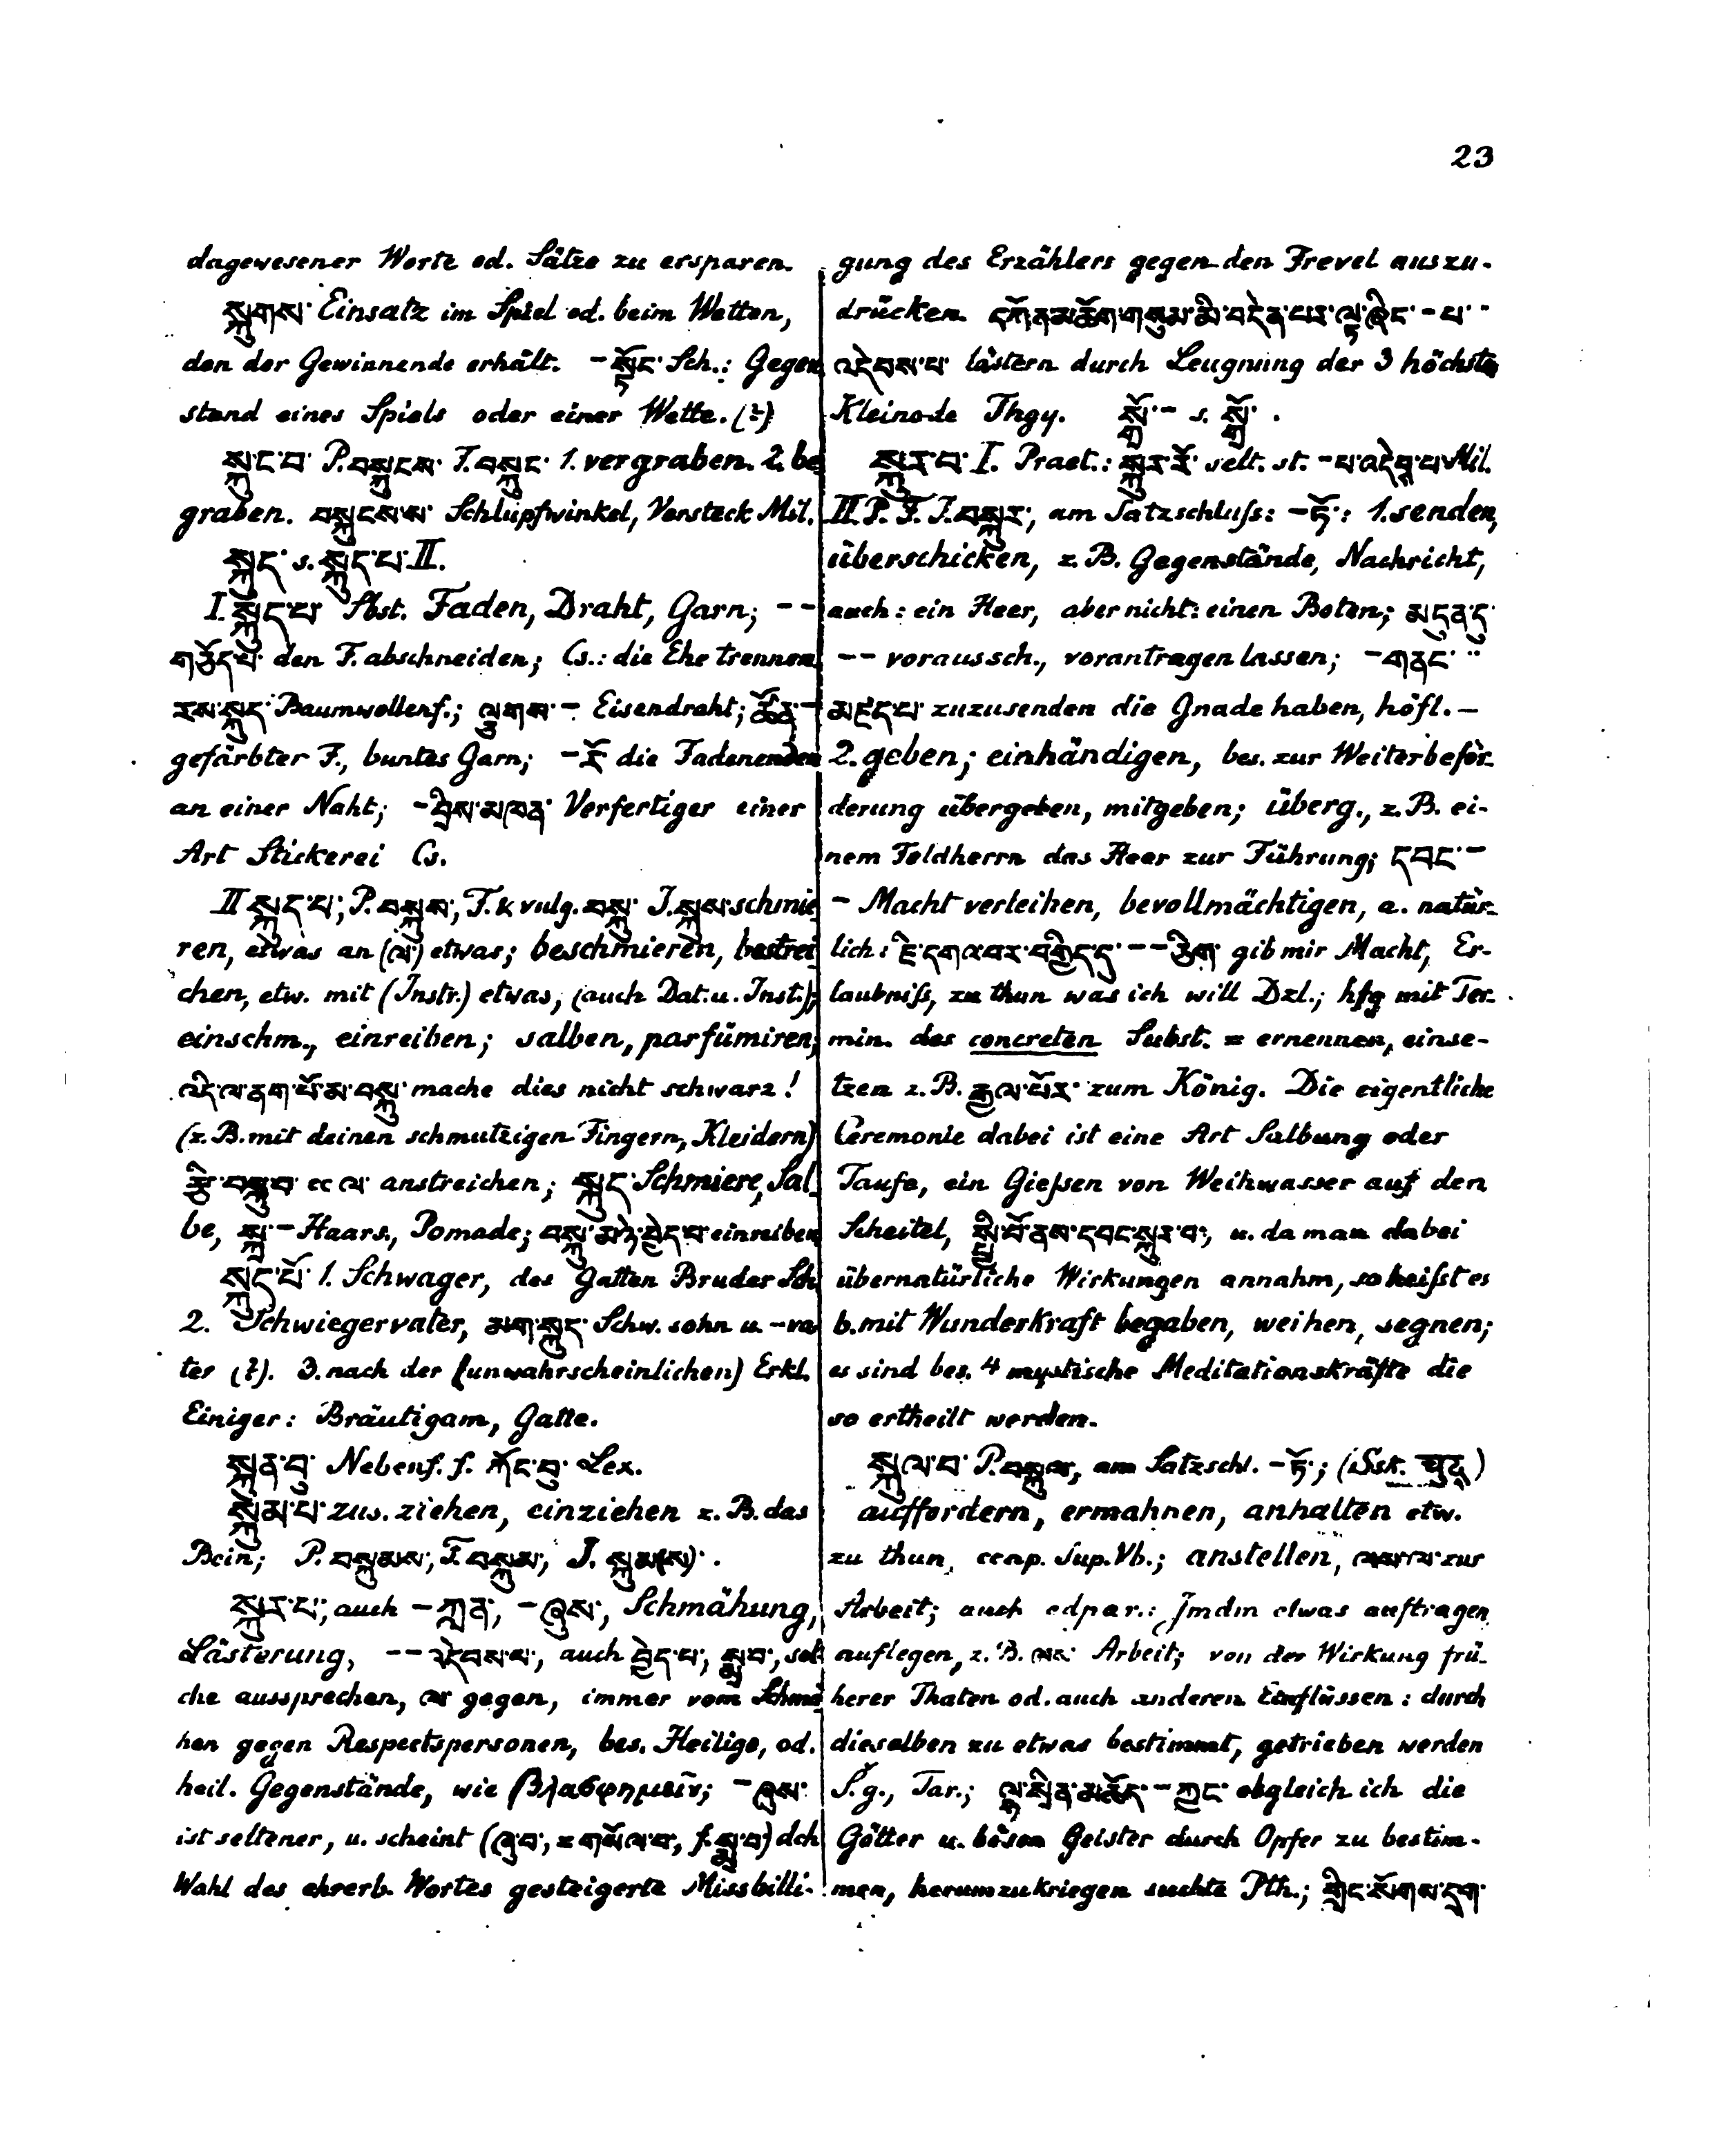 23
dagewesener Worte od. Sätze zu ersparen.
སྐུགས་ Einsatz im Spiel od. beim Wetten,
den der Gewinnende erhält. – སྟོང་ Sch.: Gegen
stand eines Spiels oder einer Wette. (?)
སྐུང་བ་ P. བསྐུངས་ F. བསྐུང་ 1. vergraben. 2. be
graben. བསྐུངས་ས་ Schlupfwinkel, Versteck Mil.
སྐུད་ s. སྐུད་པ་ II.
I. སྐུད་པ་ Sbst. Faden, Draht, Garn; – –
གཅོད་པ་ den F. abschneiden; Cs.: die Ehe trennen
རས་སྐུད་ Baumwollenf.; ལྕགས་ – Eisendraht; ཚོན་ –
gefärbter F., buntes Garn; – die Fadenenden
an einer Naht; – བྲིས་མཁན་ Verfertiger einer
Art Stickerei Cs.
II སྐུད་པ་, P. བསྐུས་, F. & vulg. བསྐུ་ J. སྐུས་ schmie
ren, etwas an (ལ་) etwas; beschmieren, bestrei
chen, etw. mit (Instr.) etwas, (auch Dat. u. Inst.);
einschm., einreiben; salben, parfümiren;
འདི་ལ་ནག་པོ་མ་བསྐུ་ mache dies nicht schwarz!
(z. B. mit deinen schmutzigen Fingern, Kleidern)
རྩི་བསྐུ་བ་ cc ལ་ anstreichen; སྐུད་ Schmiere, Sal
be, སྐྲ་ – Haars., Pomade; བསྐུ་མཉེ་བྱེད་པ་ einreiben
སྐུད་པོ་ 1. Schwager, des Gatten Bruder Sch
2. Schwiegervater, མག་སྐུད་ Schw. sohn u. – va
ter (?). 3. nach der (unwahrscheinlichen) Erkl.
Einiger: Bräutigam, Gatte.
སྐུན་བུ་ Nebenf. f. ཀོང་བུ་ Lex.
སྐུམ་པ་ zus. ziehen, einziehen z. B. das
Bein; P. བསྐུམས་, F. བསྐུམ་, J. སྐུམ(ས)་.
སྐུར་པ་, auch – ཀན་, – ཞུས་, Schmähung,
Lästerung, – – འདེབས་པ་, auch བྱེད་པ་, སྨྲ་བ་, sol
che aussprechen, ལ་ gegen, immer vom Schmä
hen gegen Respectspersonen, bes. Heilige, od.
heil. Gegenstände, wie βλασφημεῖν; – ཞུས་
ist seltener, u. scheint (ཞུ་བ་, = གསོལ་བ་, f. སྨྲ་བ་) dch
Wahl des ehrerb. Wortes gesteigerte Missbilli-
gung des Erzählers gegen den Frevel auszu-
drücken. དཀོན་མཆོག་གསུམ་མི་བདེན་པར་ལྟ་ཞིང་ – པ་
འདེབས་པ་ lästern durch Leugnung der 3 höchste
Kleinode Thgy. སྐྱོ་ – s. སྐྱོ་.
སྐུར་བ་ I. Praet.: སྐུར་རོ་ selt. st. – པ་བཏབ་པ་ Mil.
II. P. F. J. བསྐུར་, am Satzschluſs: – ཏོ་: 1. senden,
überschicken, z. B. Gegenstände, Nachricht,
auch: ein Heer, aber nicht: einen Boten; མདུན་དུ་
– – voraussch., vorantragen lassen; – གནང་
མཛད་པ་ zuzusenden die Gnade haben, höfl. –
2. geben; einhändigen, bes. zur Weiterbeför-
derung übergeben, mitgeben; überg., z. B. ei-
nem Feldherrn das Heer zur Führung; དབང་ –
– Macht verleihen, bevollmächtigen, a. natür-
lich: ཇེ་དགའ་བར་བགྱིད་དུ་ – – ཅིག་ gib mir Macht, Er-
laubniſs, zu thun was ich will Dzl.; hfg mit Ter-
min. des concreten Subst. = ernennen, einse-
tzen z. B. རྒྱལ་པོར་ zum König. Die eigentliche
Ceremonie dabei ist eine Art Salbung oder
Taufe, ein Gieſsen von Weihwasser auf den
Scheitel, སྤྱི་བོ་ནས་དབང་སྐུར་བ་, u. da man dabei
übernatürliche Wirkungen annahm, so heiſst es
b. mit Wunderkraft begaben, weihen, segnen;
es sind bes. 4 mystische Meditationskräfte die
so ertheilt werden.
སྐུལ་བ་ P. བསྐུལ་, am Satzschl. – ཏོ་; (Sskr. चुद्)
auffordern, ermahnen, anhalten etw.
zu thun, ccap. Sup. Vb.; anstellen, ལས་ལ་ zur
Arbeit; auch cdpar.: Jmdm etwas auftragen
auflegen, z. B. ལས་ Arbeit; von der Wirkung frü-
herer Thaten od. auch anderen Einflüssen: durch
dieselben zu etwas bestimmt, getrieben werden
S.g., Tar.; ལྷ་སྲིན་མཆོད་ – ཀྱང་ obgleich ich die
Götter u. bösen Geister durch Opfer zu bestim-
men, herumzukriegen suchte Pth.; གླིང་སོགས་དྲག་